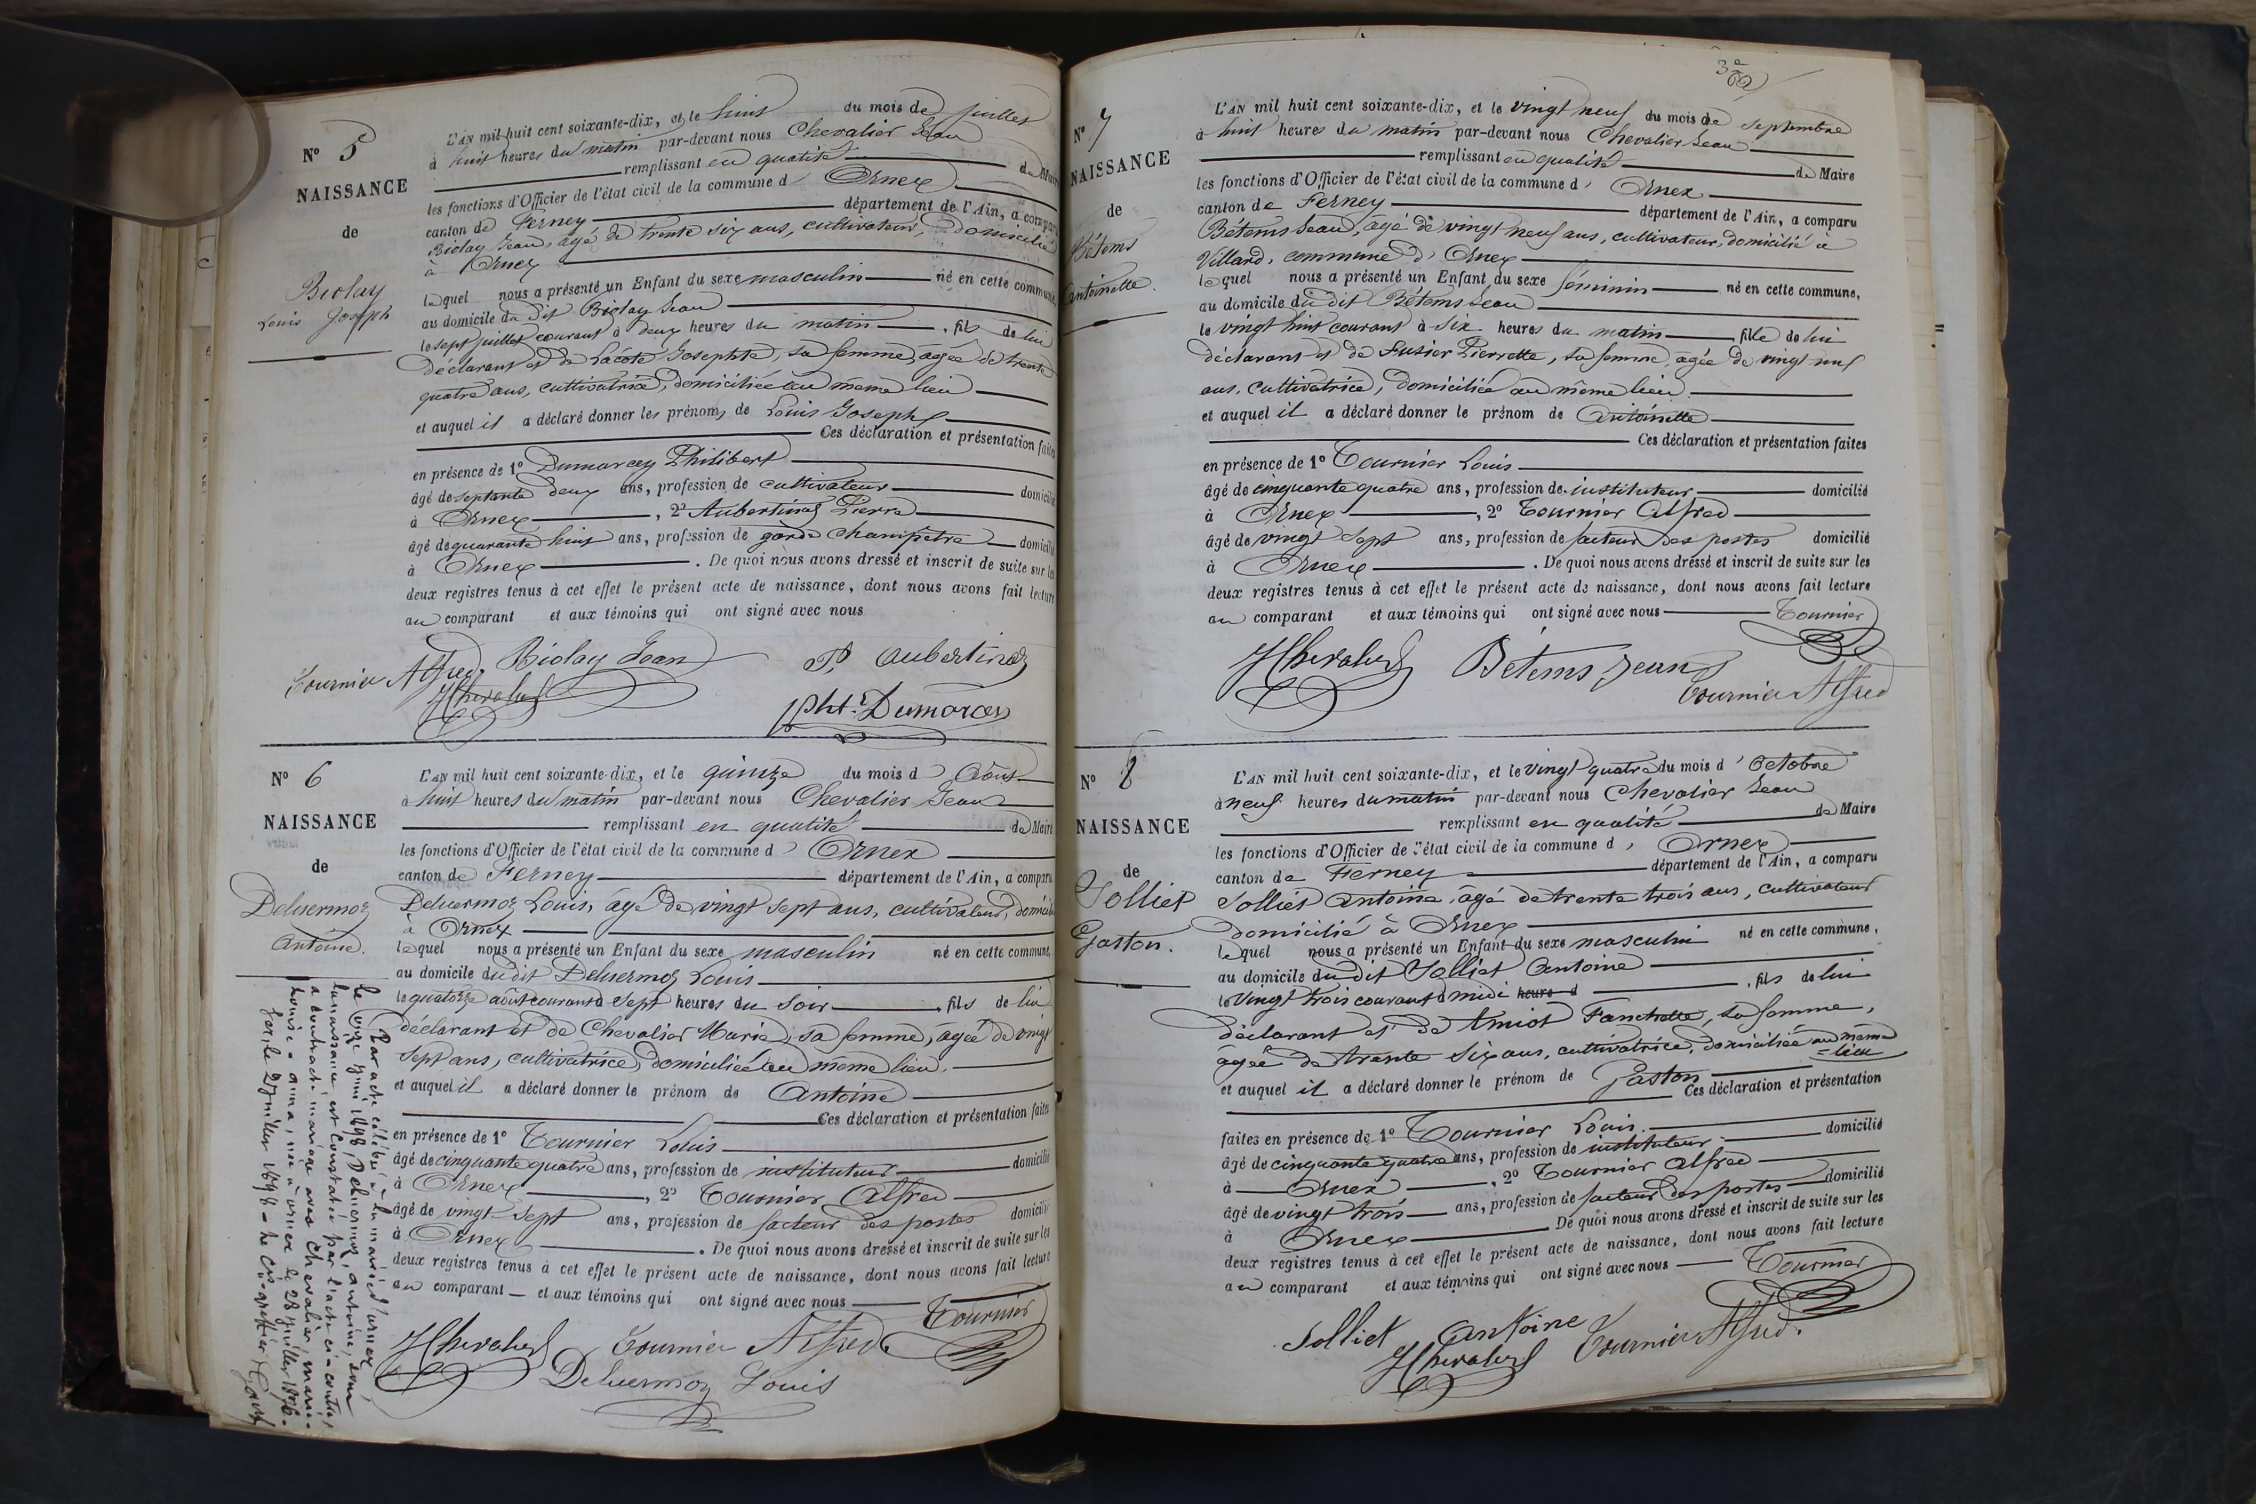 N° 5
NAISSANCE
de
Biolay
Louis Joseph
L'AN mil huit cent soixante-dix, et le huit du mois de juillet
à huit heures du matin par-devant nous Chevalier Jean
remplissant en qualité de Maire
les fonctions d'Officier de l'état civil de la commune d' Ornex
canton de Ferney département de l'Ain, a comparu
Biolay Jean, âgé de trente six ans, cultivateur, domicilié
à Ornex
lequel nous a présenté un Enfant du sexe masculin né en cette commune
au domicile du dit Biolay Jean
le sept juillet courant à deux heures du matin, fils de lui
déclarant et de Lacôte Josephte, sa femme, âgée de trente
quatre ans, cultivatrice, domiciliée au même lieu
et auquel il a déclaré donner les prénoms de Louis Joseph
Ces déclaration et présentation faites
en présence de 1° Dumarcey Philibert
âgé de septante deux ans, profession de cultivateur domicilié
à Ornex, 2° Aubertinaz Pierre
âgé de quarante huit ans, profession de garde champêtre domicilié
à Ornex. De quoi nous avons dressé et inscrit de suite sur les
deux registres tenus à cet effet le présent acte de naissance, dont nous avons fait lecture
au comparant et aux témoins qui ont signé avec nous
Biolay Jean Aubertinaz
Tournier Alfred
JChevalier Pht Dumarcey
N° 6
NAISSANCE
de
Deluermoz
Antoine.
L'AN mil huit cent soixante-dix, et le quinze du mois d' Août
à huit heures du matin par-devant nous Chevalier Jean
remplissant en qualité de Maire
les fonctions d'Officier de l'état civil de la commune d' Ornex
canton de Ferney département de l'Ain, a comparu
Deluermoz Louis, âgé de vingt sept ans, cultivateur, domicilié
à Ornex
lequel nous a présenté un Enfant du sexe masculin né en cette commune,
au domicile du dit Deluermoz Louis
le quatorze août courant à sept heures du soir, fils de lui
déclarant et de Chevalier Marie, sa femme, âgée de vingt
sept ans, cultivatrice, domiciliée au même lieu.
et auquel il a déclaré donner le prénom de Antoine
Ces déclaration et présentation faites
en présence de 1° Tournier Louis
âgé de cinquante quatre ans, profession de instituteur domicilié
à Ornex, 2° Tournier Alfred
âgé de vingt sept ans, profession de facteur des postes domicilié
à Ornex. De quoi nous avons dressé et inscrit de suite sur les
deux registres tenus à cet effet le présent acte de naissance, dont nous avons fait lecture
au comparant et aux témoins qui ont signé avec nous Tournier
JChevalier Tournier Alfred
Deluermoz Louis
Par acte célébré à la mairie d'ornex,
le onze juin 1898, Deluermoz, antoine, dont
la naissance est constatée par l'acte ci-contre,
a contracté mariage avec Chevalier, marie-
louise-anna, née à ornex le 28 juillet 1876.
Gex, le 2 juillet 1898 - Le Cis-greffier
3e
N° 7
NAISSANCE
de
Bétems
Antoinette.
L'AN mil huit cent soixante-dix, et le vingt neuf du mois de septembre
à huit heures du matin par-devant nous Chevalier Jean
remplissant en qualité de Maire
les fonctions d'Officier de l'état civil de la commune d' Ornex
canton de Ferney département de l'Ain, a comparu
Bétems Jean, âgé de vingt neuf ans, cultivateur, domicilié à
Villard, commune d' Ornex
lequel nous a présenté un Enfant du sexe féminin né en cette commune,
au domicile du dit Bétems Jean
le vingt huit courant à six heures du matin fille de lui
déclarant et de Fusier Pierrette, sa femme, âgée de vingt neuf
ans, cultivatrice, domiciliée au même lieu.
et auquel il a déclaré donner le prénom de Antoinette
Ces déclaration et présentation faites
en présence de 1° Tournier Louis
âgé de cinquante quatre ans, profession de instituteur domicilié
à Ornex, 2° Tournier Alfred
âgé de vingt sept ans, profession de facteur des postes domicilié
à Ornex. De quoi nous avons dressé et inscrit de suite sur les
deux registres tenus à cet effet le présent acte de naissance, dont nous avons fait lecture
au comparant et aux témoins qui ont signé avec nous Tournier
JChevalier Bétems Jean
Tournier Alfred
N° 8
NAISSANCE
de
Solliet
Gaston.
L'AN mil huit cent soixante-dix, et le vingt quatre du mois d' Octobre
à neuf heures du matin par-devant nous Chevalier Jean
remplissant en qualité de Maire
les fonctions d'Officier de l'état civil de la commune d' Ornex
canton de Ferney département de l'Ain, a comparu
Solliet Antoine, âgé de trente trois ans, cultivateur
domicilié à Ornex
lequel nous a présenté un Enfant du sexe masculin né en cette commune,
au domicile du dit Solliet Antoine
le vingt trois courant à midi heure d, fils de lui
déclarant et de Amiot Fanchette, sa femme,
âgée de trente six ans, cultivatrice, domiciliée au même
=lieu
et auquel il a déclaré donner le prénom de Gaston
Ces déclaration et présentation
faites en présence de 1° Tournier Louis. domicilié
âgé de cinquante quatre ans, profession de instituteur
à Ornex, 2° Tournier Alfred
âgé de vingt trois ans, profession de facteur des postes domicilié
à Ornex De quoi nous avons dressé et inscrit de suite sur les
deux registres tenus à cet effet le présent acte de naissance, dont nous avons fait lecture
au comparant et aux témoins qui ont signé avec nous Tournier
Solliet Antoine Tournier Alfred.
JChevalier